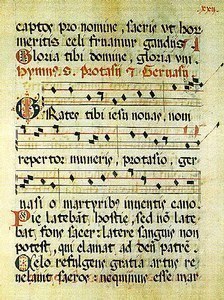 xxij
captos pro nomine, sacris vt hor
meritis celi fruamur gaudijs
Gloria tibi domine, gloria vni
Hymnus S. Protasij & Geruasij
Grates tibi iesu nouas, noui
repertor muneris, protasio, ger
uasi o martyribus inuentis cano
Pie latebat hostie, sed nō late
bat fons sacer: latere sanguis non
potest, qui clamat ad deū patrē.
Celo refulgens gratia artus re
uelauit sacros: nequimus esse mar